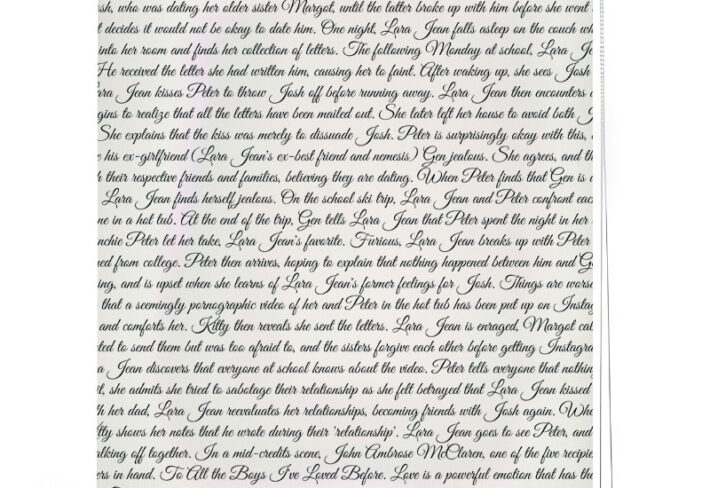 sh, who was dating her older sister Margot, until the latter broke up with him before she went
t decides it would not be okay to date him. One night, Lara Jean falls asleep on the couch wh
into her room and finds her collection of letters. The following Monday at school, Lara Je
He received the letter she had written him, causing her to faint. After waking up, she sees Josh
ara Jean kisses Peter to throw Josh off before running away. Lara Jean then encounters
gins to realize that all the letters have been mailed out. She later left her house to avoid both J
She explains that the kiss was merely to dissuade Josh. Peter is surprisingly okay with this,
e his ex-girlfriend (Lara Jean's ex-best friend and nemesis) Gen jealous. She agrees, and th
h their respective friends and families, believing they are dating. When Peter finds that Gen is
Lara Jean finds herself jealous. On the school ski trip, Lara Jean and Peter confront eac
ne in a hot tub. At the end of the trip, Gen tells Lara Jean that Peter spent the night in her
nchie Peter let her take, Lara Jean's favorite. Furious, Lara Jean breaks up with Peter
ed from college. Peter then arrives, hoping to explain that nothing happened between him and G
ing, and is upset when she learns of Lara Jean's former feelings for Josh. Things are worse
that a seemingly pornographic video of her and Peter in the hot tub has been put up on Instag
and comforts her. Kitty then reveals she sent the letters. Lara Jean is enraged, Margot cal
ted to send them but was too afraid to, and the sisters forgive each other before getting Instagra
a Jean discovers that everyone at school knows about the video. Peter tells everyone that nothin
it, she admits she tried to sabotage their relationship as she felt betrayed that Lara Jean kissed
h her dad, Lara Jean reevaluates her relationships, becoming friends with Josh again. Whe
tty shows her notes that he wrote during their 'relationship'. Lara Jean goes to see Peter, and
alking off together. In a mid-credits scene, John Ambrose McClaren, one of the five recipie
ers in hand. To All the Boys I've Loved Before. Love is a powerful emotion that has the